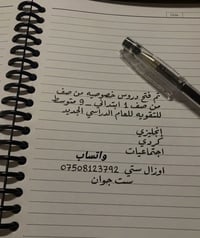 تم فتح دروس خصوصيه من صف
من صف 1 ابتدائي _ 9 متوسط
للتقويه للعام الدراسي الجديد
إنجليزي
كردي
اجتماعيات
واتساب
اوزال ستي 07508123792
ست جوان